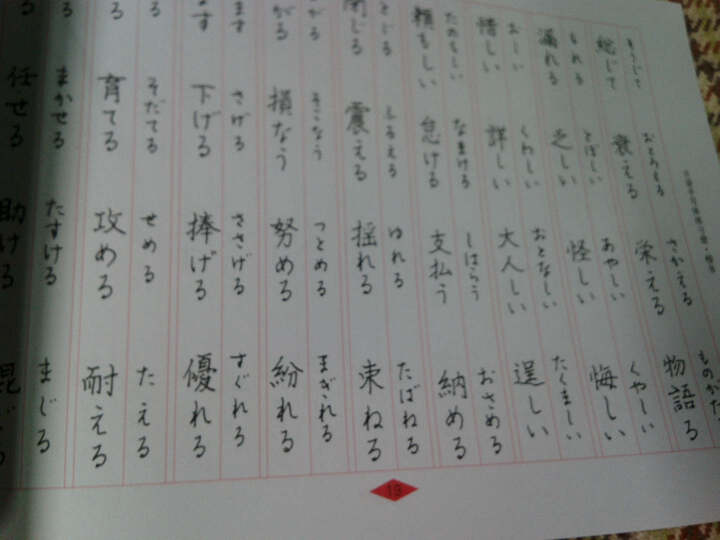 そうじて おとろえる さかえる ものがた
総じて 衰える 栄える 物語る
もれる とぼしい あやしい くやしい
漏れる 乏しい 怪しい 悔しい
おしい くわしい おとなしい たくましい
惜しい 詳しい 大人しい 逞しい
たのもしい なまける しはらう おさめる
頼もしい 怠ける 支払う 納める
とじる ふるえる ゆれる たばねる
閉じる 震える 揺れる 束ねる
がる そこなう つとめる まぎれる
がる 損なう 努める 紛れる
ます さげる ささげる すぐれる
ます 下げる 捧げる 優れる
る そだてる せめる たえる
る 育てる 攻める 耐える
る まかせる たすける まじる
る 任せる 助ける 混じる
19